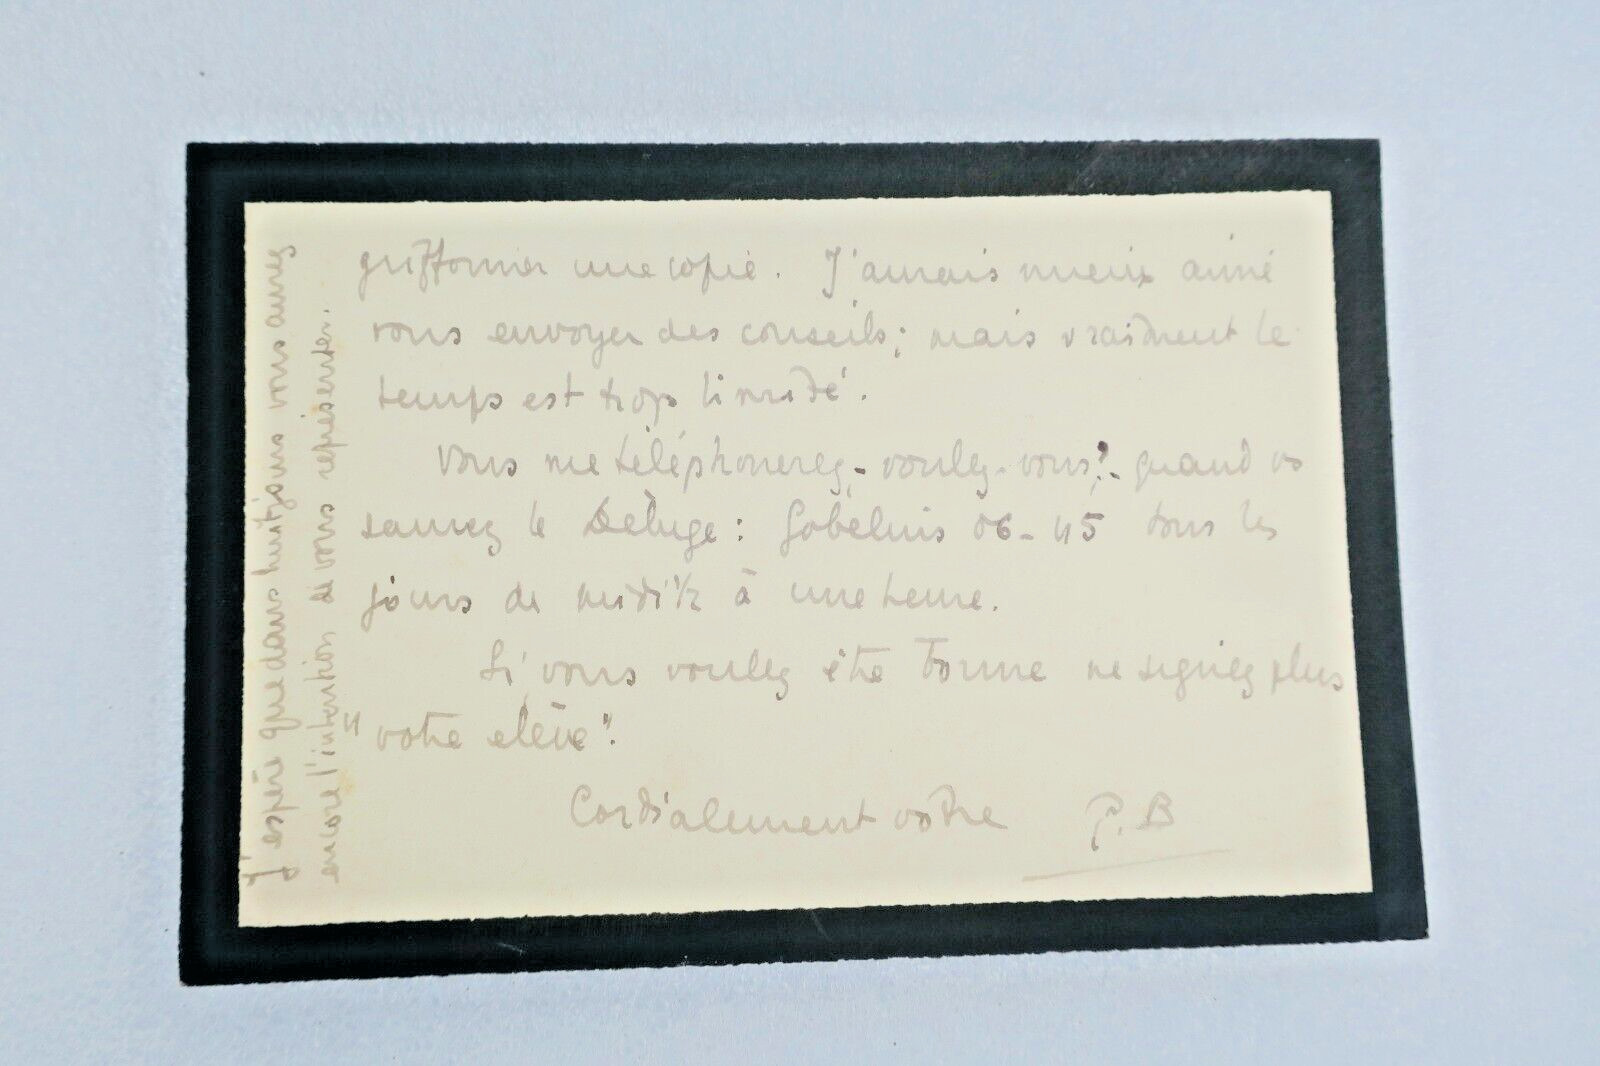 griffonner une copie. J'aurais mieux aimé
vous envoyer des conseils; mais vraiment le
temps est trop limité.
Vous me téléphonerez - voulez-vous? - quand vs
saurez le Déluge: Gobelins 06-45 tous les
jours de midi ½ à une heure.
Si vous voulez être bonne ne signez plus
"votre élève".
Cordialement vôtre P.B
J'espère que dans huit jours vous aurez
encore l'intention de vous représenter.